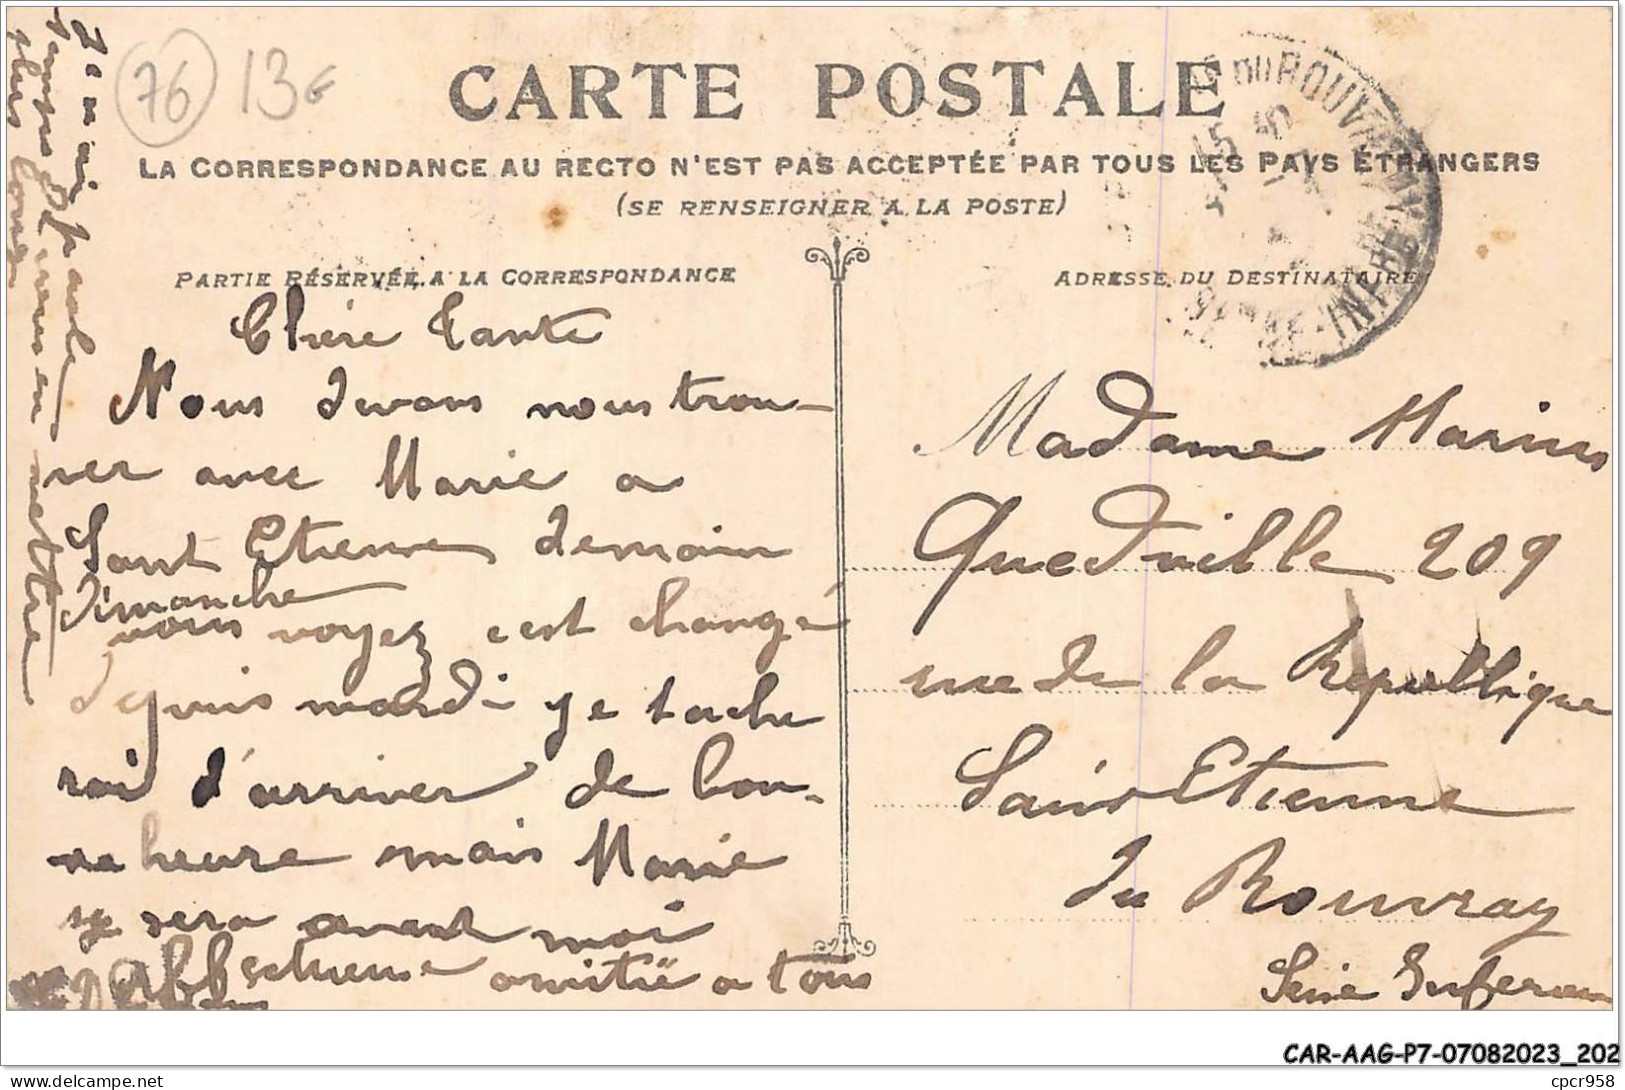 76
13€
CARTE POSTALE
LA CORRESPONDANCE AU RECTO N'EST PAS ACCEPTÉE PAR TOUS LES PAYS ÉTRANGERS
(SE RENSEIGNER A LA POSTE)
DU ROUVRAY
SEINE-INFRE
PARTIE RÉSERVÉE A LA CORRESPONDANCE
Chère Tante
Nous devons nous trou-
ver avec Marie a
Saint Etienne demain
dimanche
vous voyez c est changé
depuis mardi je tache
rai d'arriver de bon-
ne heure mais Marie
y sera avant moi
affectueuse amitié a tous
plus longs
en mettre
ADRESSE DU DESTINATAIRE
Madame Marius
Quedville 209
rue de la Republique
Saint Etienne
du Rouvray
Seine Inferieure
CAR-AAG-P7-07082023_202
cpcr958